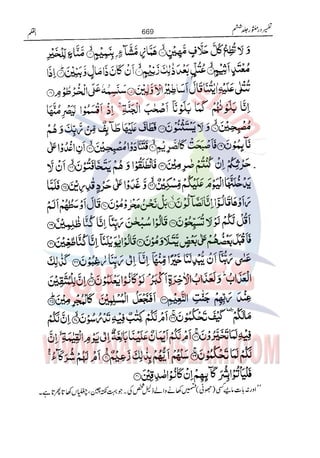 القلم 669 تفسیر درمنثور جلد ششم
وَ لَا تُطِعْ كُلَّ حَلَّافٍ مَّهِيْنٍ ۙ هَمَّازٍ مَّشَّآءٍۭ بِنَمِيْمٍ ۙ مَّنَّاعٍ لِّلْخَيْرِ
مُعْتَدٍ اَثِيْمٍ ۙ عُتُلٍّۭ بَعْدَ ذٰلِكَ زَنِيْمٍ ۙ اَنْ كَانَ ذَا مَالٍ وَّ بَنِيْنَ ۙ اِذَا
تُتْلٰى عَلَيْهِ اٰيٰتُنَا قَالَ اَسَاطِيْرُ الْاَوَّلِيْنَ ۙ سَنَسِمُهٗ عَلَى الْخُرْطُوْمِ ۙ
اِنَّا بَلَوْنٰهُمْ كَمَا بَلَوْنَاۤ اَصْحٰبَ الْجَنَّةِ ۚ اِذْ اَقْسَمُوْا لَيَصْرِمُنَّهَا
مُصْبِحِيْنَ ۙ وَ لَا يَسْتَثْنُوْنَ ۙ فَطَافَ عَلَيْهَا طَآىِٕفٌ مِّنْ رَّبِّكَ وَ هُمْ
نَآىِٕمُوْنَ ۙ فَاَصْبَحَتْ كَالصَّرِيْمِ ۙ فَتَنَادَوْا مُصْبِحِيْنَ ۙ اَنِ اغْدُوْا عَلٰى
حَرْثِكُمْ اِنْ كُنْتُمْ صٰرِمِيْنَ ۙ فَانْطَلَقُوْا وَ هُمْ يَتَخَافَتُوْنَ ۙ اَنْ لَّا
يَدْخُلَنَّهَا الْيَوْمَ عَلَيْكُمْ مِّسْكِيْنٌ ۙ وَّ غَدَوْا عَلٰى حَرْدٍ قٰدِرِيْنَ ۙ فَلَمَّا
رَاَوْهَا قَالُوْۤا اِنَّا لَضَآلُّوْنَ ۙ بَلْ نَحْنُ مَحْرُوْمُوْنَ ۙ قَالَ اَوْسَطُهُمْ اَلَمْ
اَقُلْ لَّكُمْ لَوْ لَا تُسَبِّحُوْنَ ۙ قَالُوْا سُبْحٰنَ رَبِّنَاۤ اِنَّا كُنَّا ظٰلِمِيْنَ ۙ
فَاَقْبَلَ بَعْضُهُمْ عَلٰى بَعْضٍ يَّتَلَاوَمُوْنَ ۙ قَالُوْا يٰوَيْلَنَاۤ اِنَّا كُنَّا طٰغِيْنَ ۙ
عَسٰى رَبُّنَاۤ اَنْ يُّبْدِلَنَا خَيْرًا مِّنْهَاۤ اِنَّاۤ اِلٰى رَبِّنَا رٰغِبُوْنَ ۙ كَذٰلِكَ
الْعَذَابُ ؕ وَ لَعَذَابُ الْاٰخِرَةِ اَكْبَرُ ۘ لَوْ كَانُوْا يَعْلَمُوْنَ ۙ اِنَّ لِلْمُتَّقِيْنَ
عِنْدَ رَبِّهِمْ جَنّٰتِ النَّعِيْمِ ۙ اَفَنَجْعَلُ الْمُسْلِمِيْنَ كَالْمُجْرِمِيْنَ ۙ
مَا لَكُمْ ٝ كَيْفَ تَحْكُمُوْنَ ۙ اَمْ لَكُمْ كِتٰبٌ فِيْهِ تَدْرُسُوْنَ ۙ اِنَّ لَكُمْ
فِيْهِ لَمَا تَخَيَّرُوْنَ ۙ اَمْ لَكُمْ اَيْمَانٌ عَلَيْنَا بَالِغَةٌ اِلٰى يَوْمِ الْقِيٰمَةِ ۙ اِنَّ
لَكُمْ لَمَا تَحْكُمُوْنَ ۙ سَلْهُمْ اَيُّهُمْ بِذٰلِكَ زَعِيْمٌ ۙ اَمْ لَهُمْ شُرَكَآءُ ۚ
فَلْيَاْتُوْا بِشُرَكَآىِٕهِمْ اِنْ كَانُوْا صٰدِقِيْنَ ۙ
’’اور نہ بات مانیے کسی (جھوٹی) قسمیں کھانے والے ذلیل شخص کی۔ جو بہت نکتہ چین، چغلیاں کھاتا پھرتا ہے۔